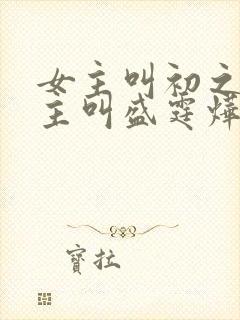 女主叫初之
主叫盛霆烨
寶拉